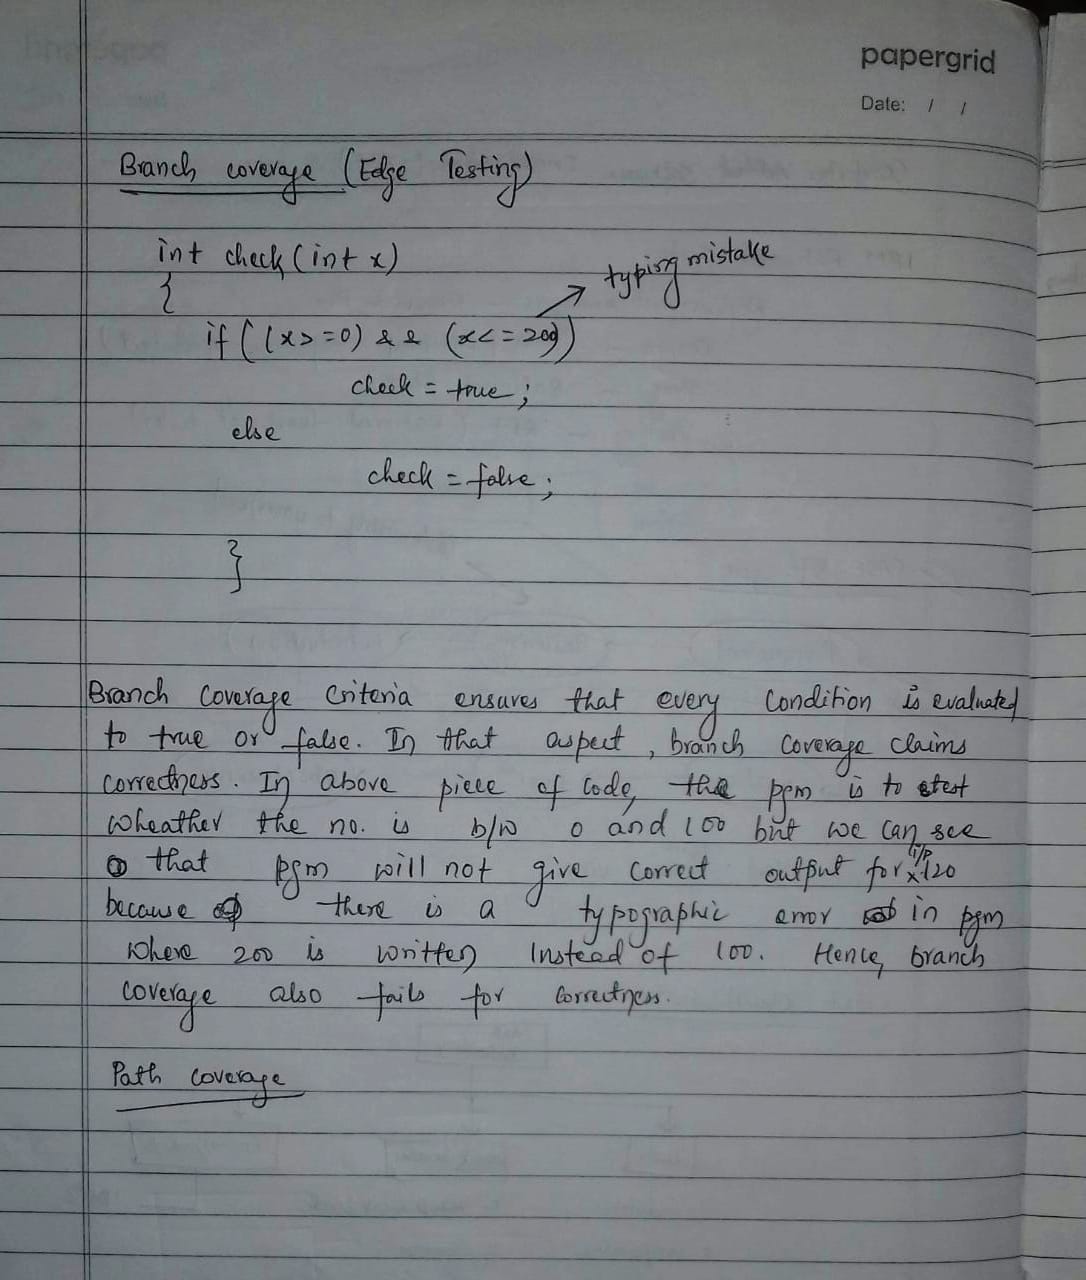 papergrid
Date: / /
Branch coverage (Edge Testing)
int check (int x)
typing mistake
{
if ((x>=0) && (x<=200))
check = true;
else
check = false;
}
Branch coverage criteria ensures that every condition is evaluated
to true or false. In that aspect, branch coverage claims
correctness. In above piece of code, the pgm is to test
wheather the no. is b/w 0 and 100 but we can see
that pgm will not give correct output for i/p
because there is a typographic error in pgm
where 200 is written instead of 100. Hence, branch
coverage also fails for correctness.
Path coverage